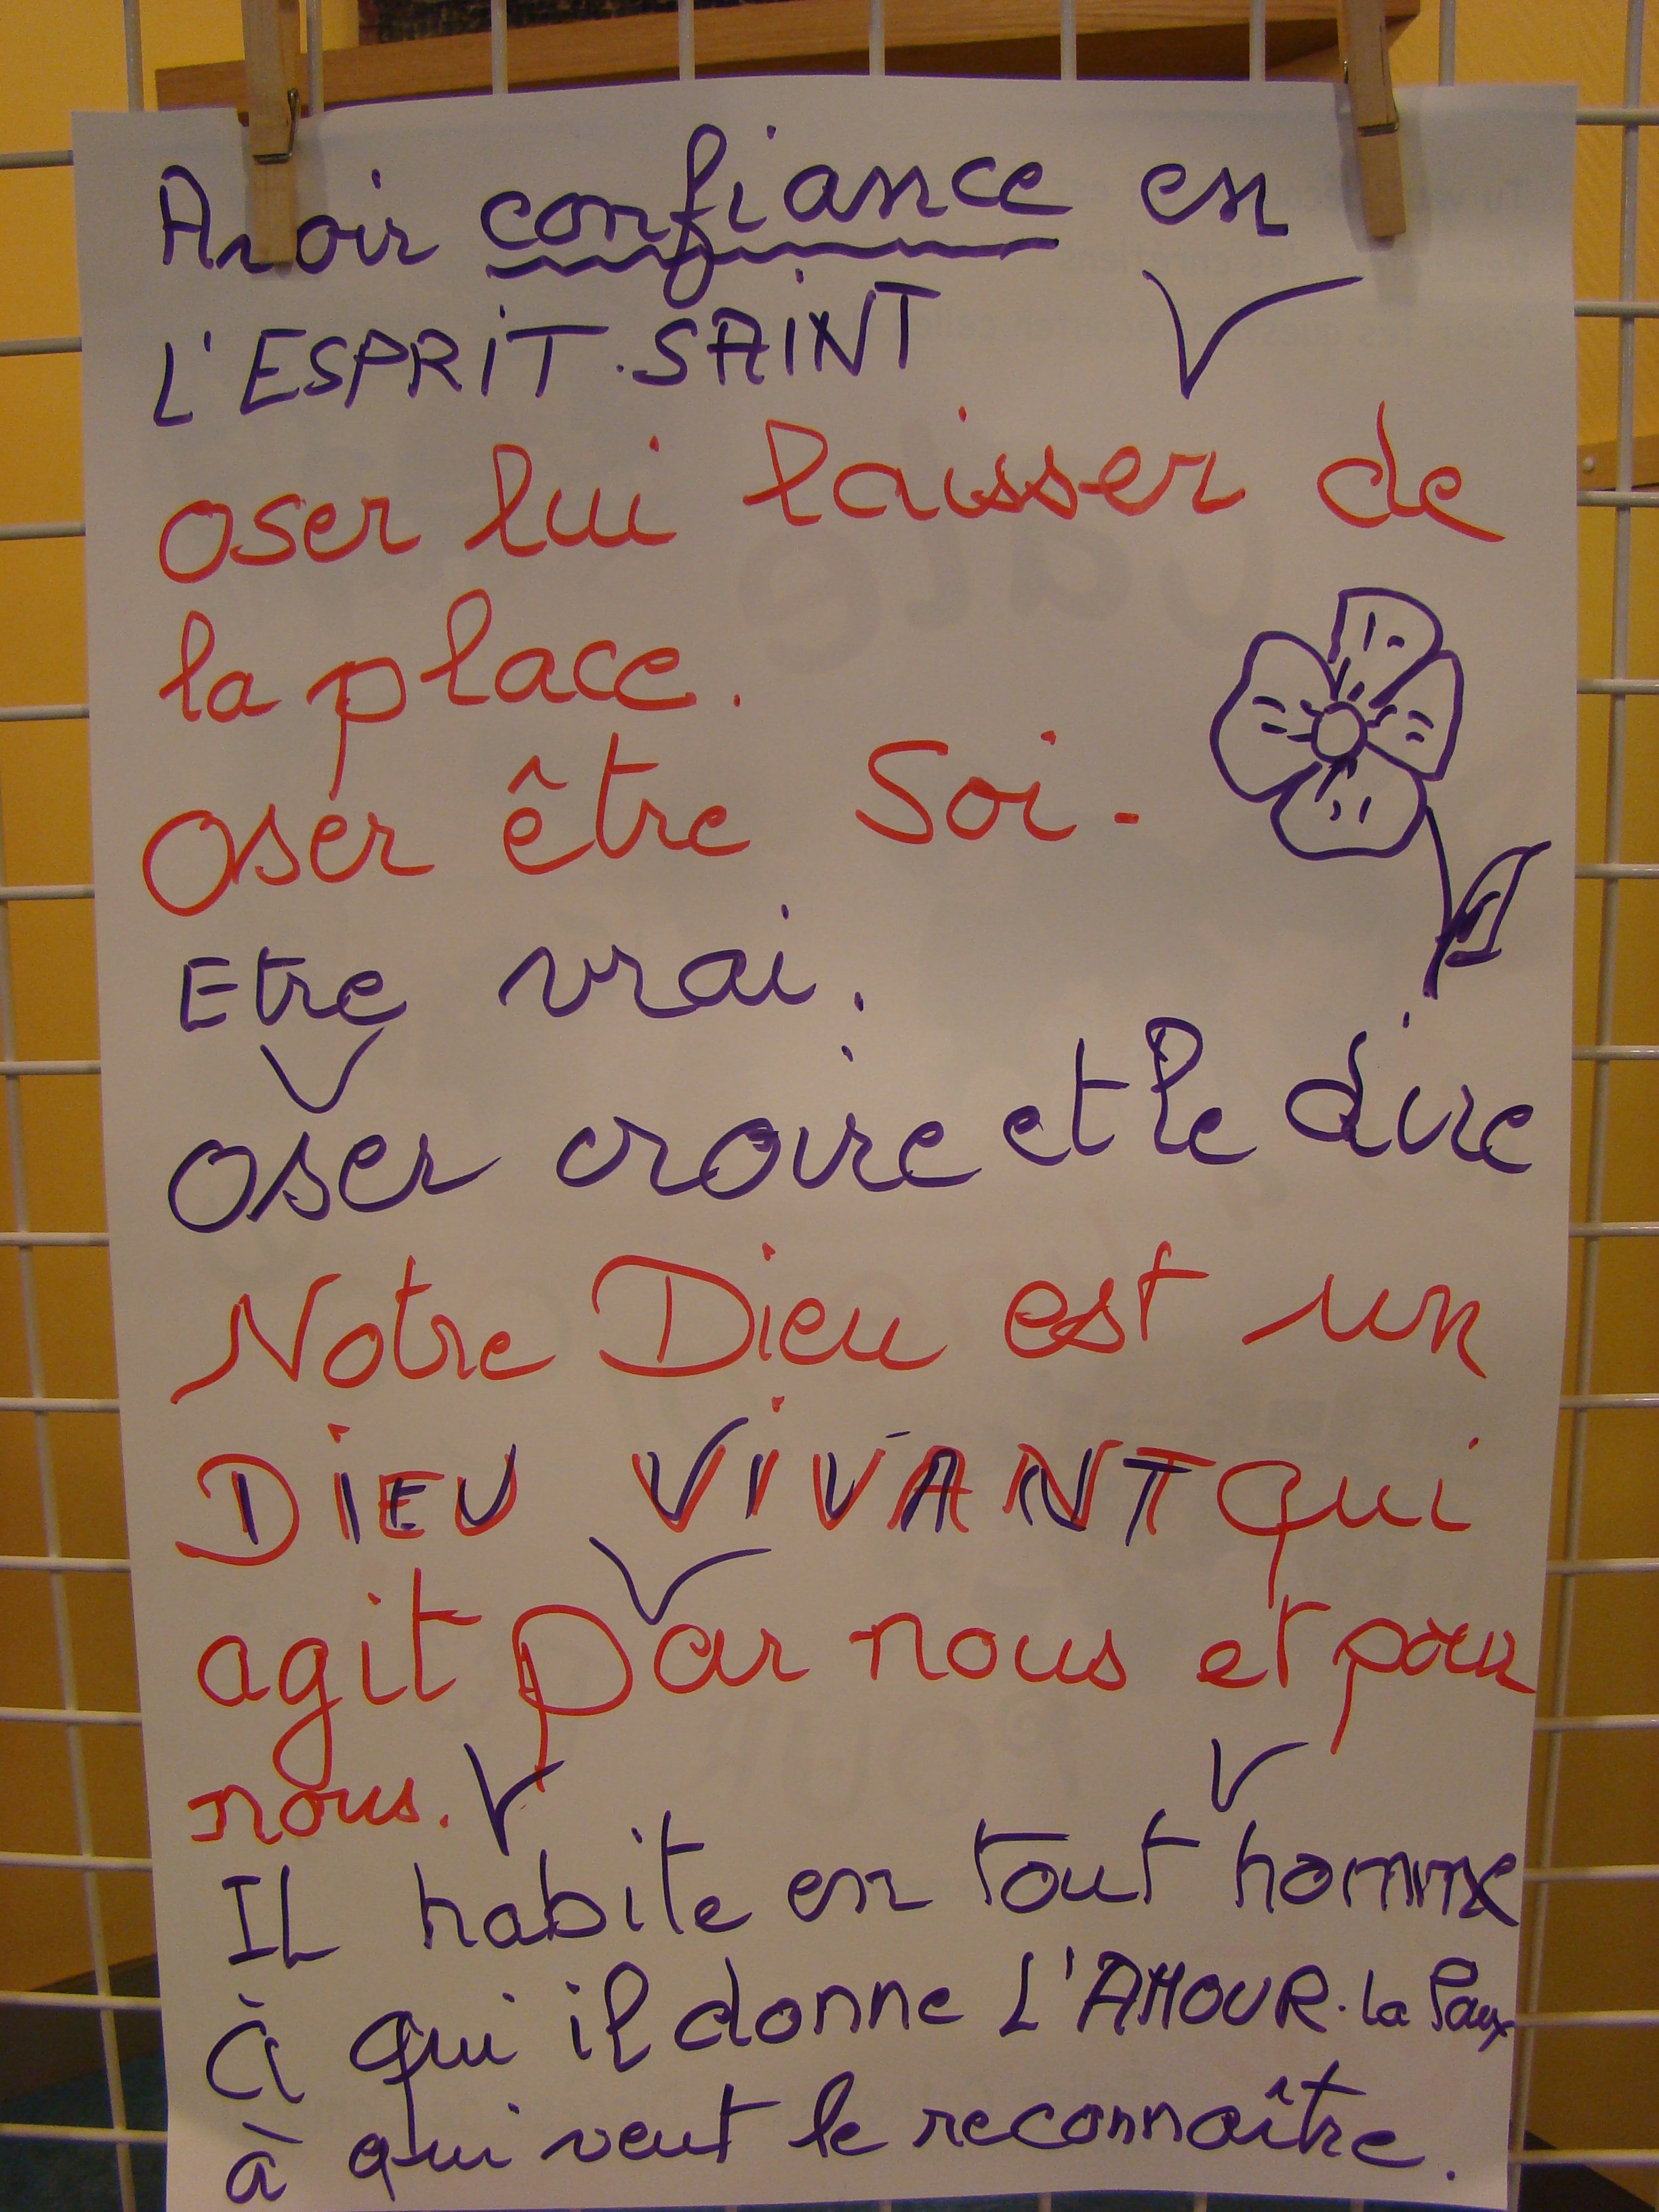 Avoir confiance en
L'ESPRIT.SAINT
oser lui laisser de
la place.
Oser être Soi-
Etre vrai.
oser croire et le dire
Notre Dieu est un
DIEU VIVANT qui
agit par nous et pour
nous.
IL habite en tout homme
à qui il donne L'AMOUR. la Paix
à qui veut le reconnaître.